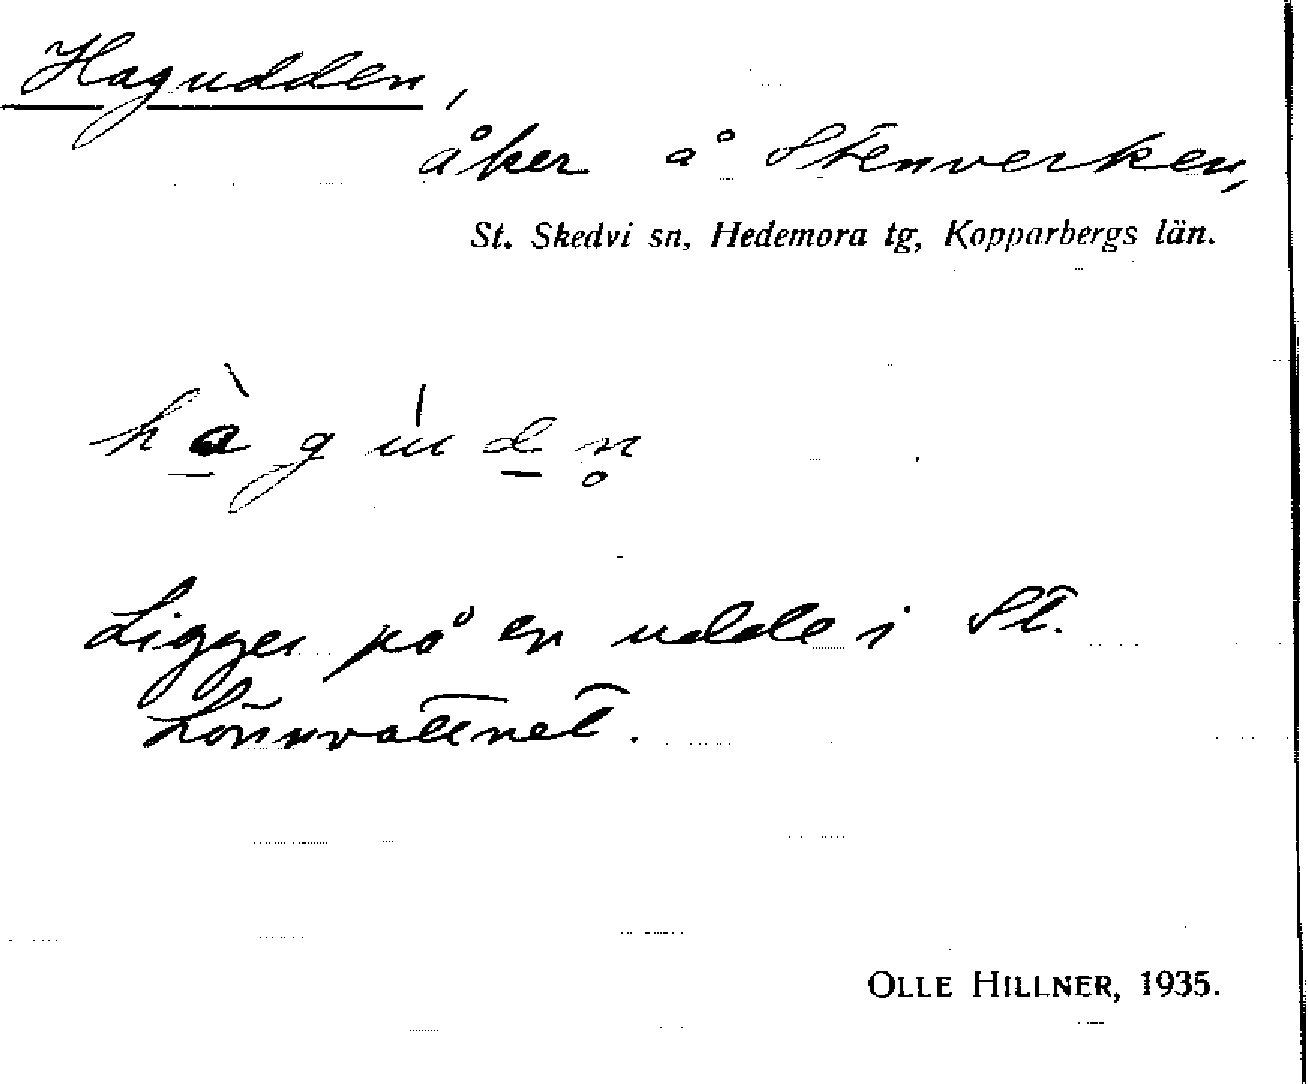 Hagudden,
åker å Stenverken,
St. Skedvi sn, Hedemora tg, Kopparbergs län.
hàgu̍dn̥
Ligger på en udde i St.
Lönnvattnet.
OLLE HILLNER, 1935.